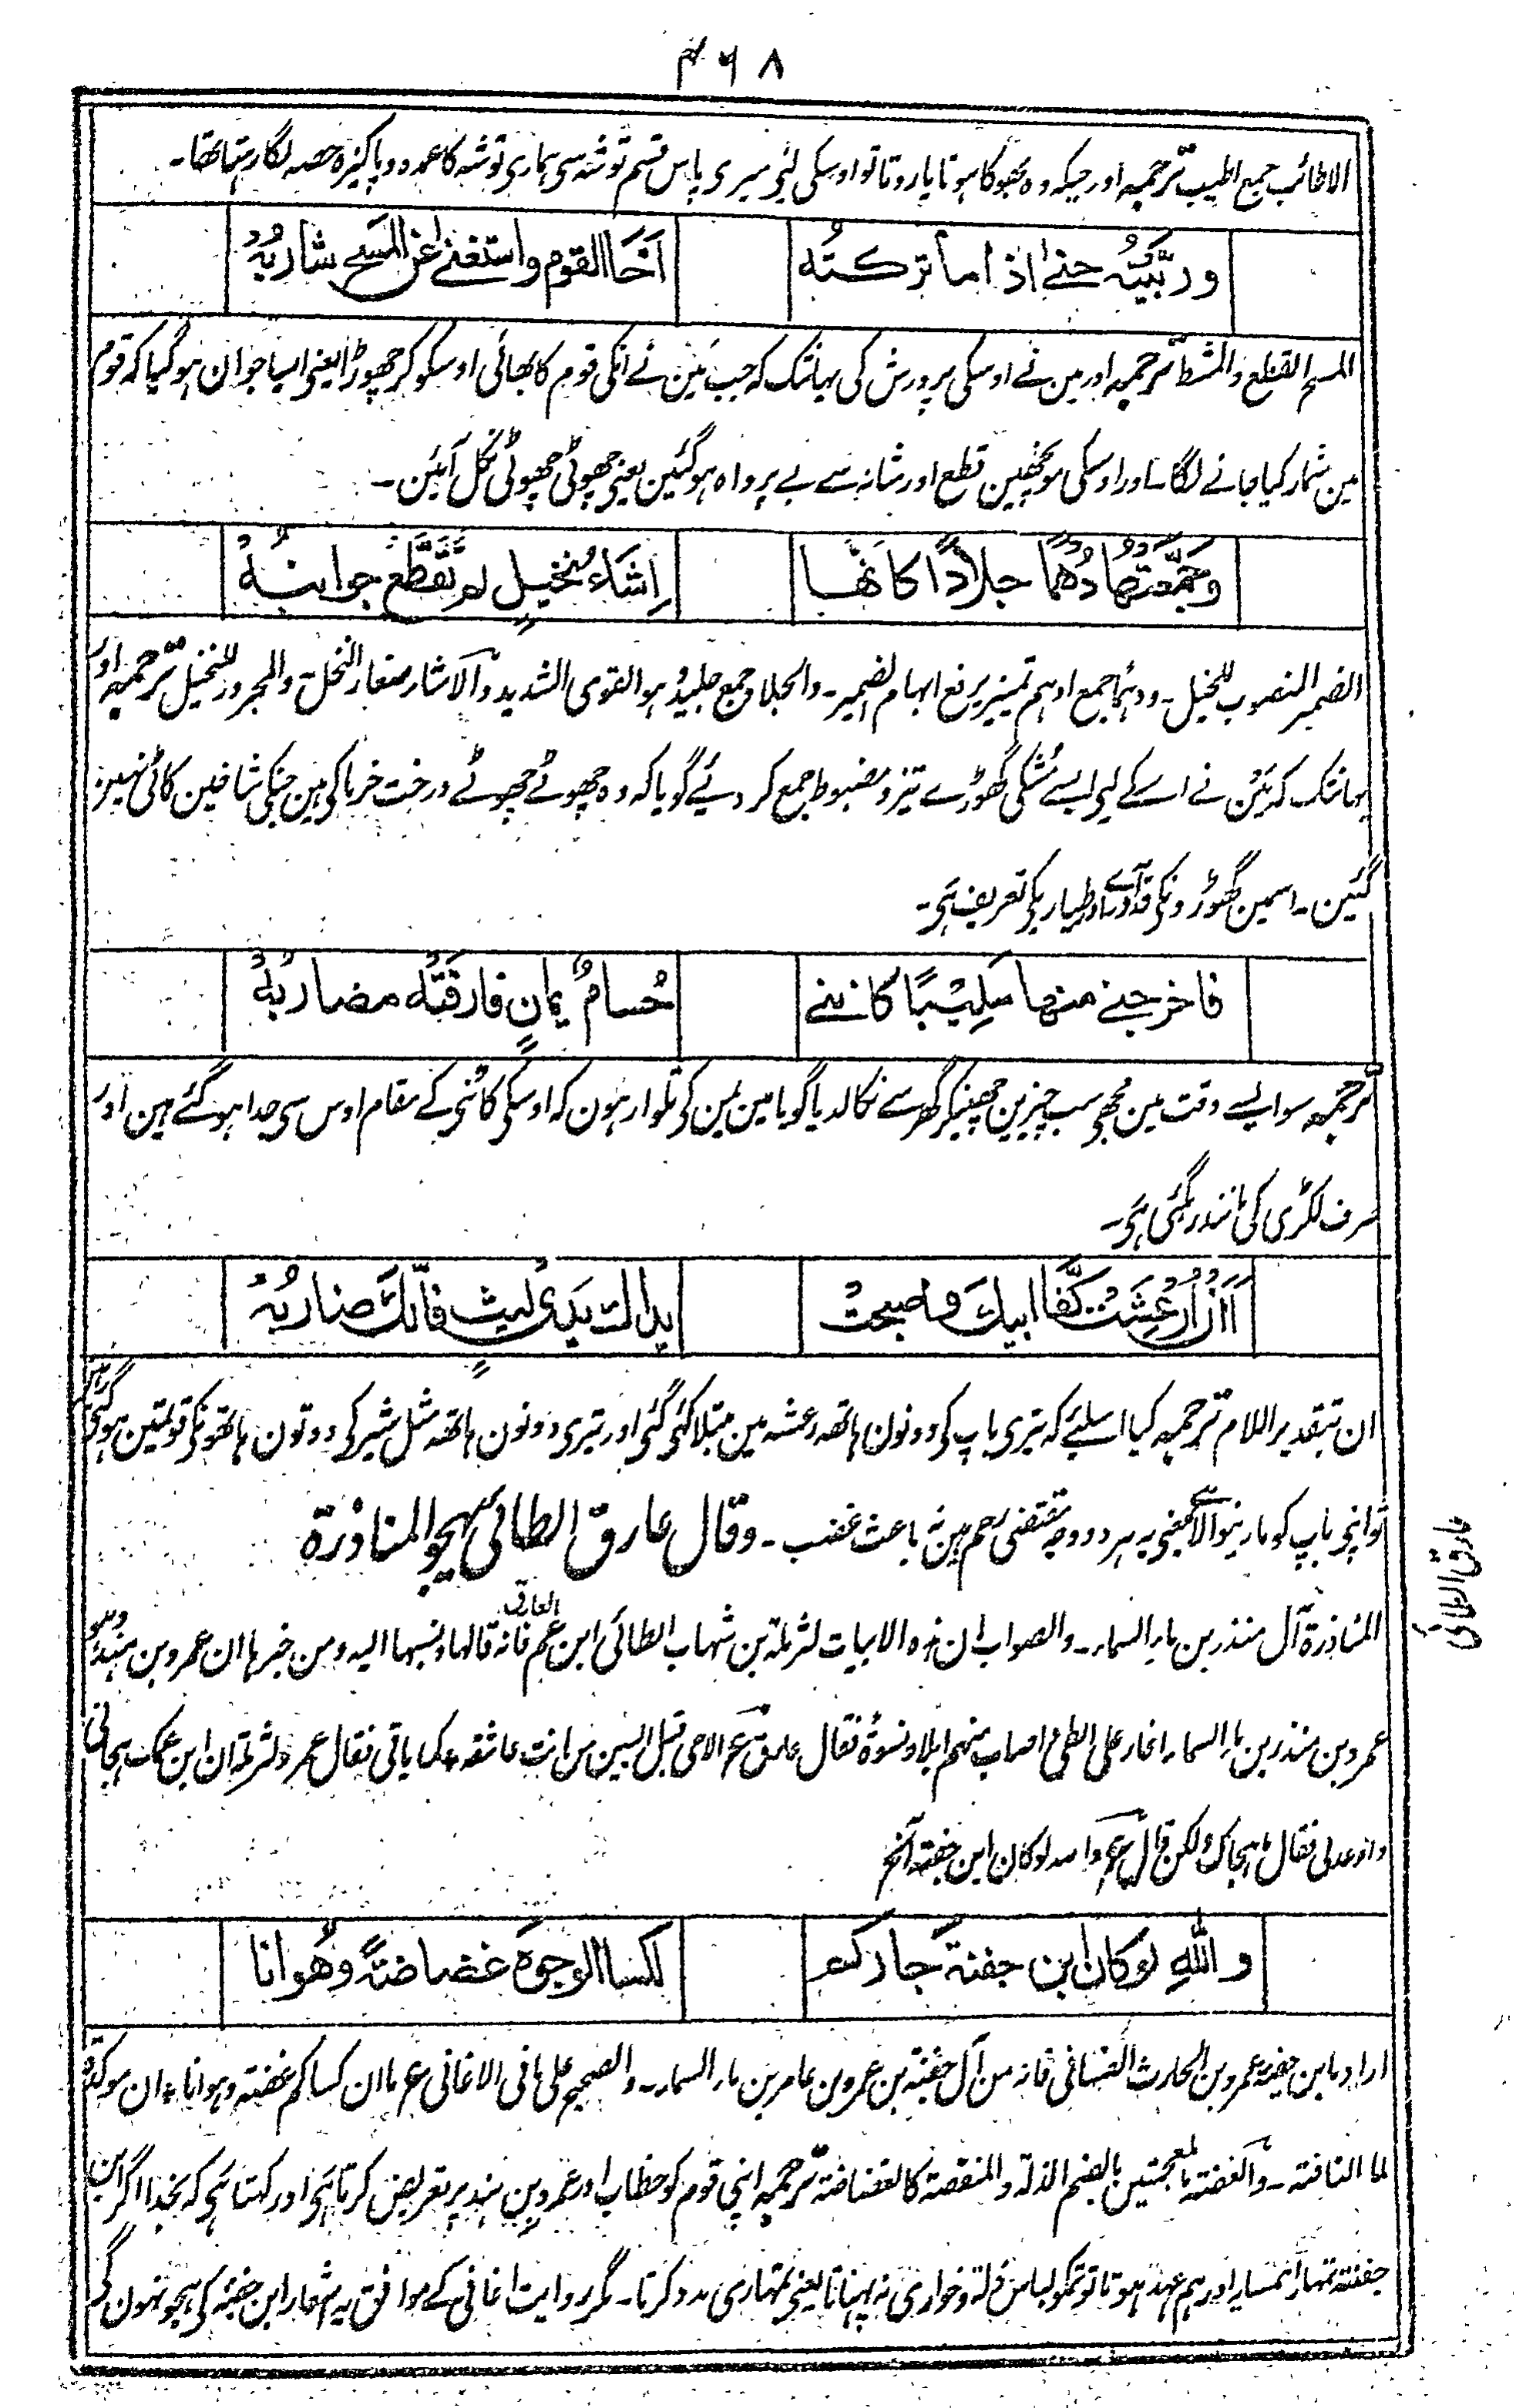 ۴۶۸
الاطائب جمع اطیب ترجمہ اور جبکہ وہ بھوکا ہوتا یا روتا تو اوسکی لئی میری پاس قسم توشہ سی ہماری توشہ کا عمدہ و پاکیزہ حصہ لگا رہتا تھا۔
وربَّیتُہ حتے اذا ما ترکتُہ اَخَا القوم واستغنے عن المسح شاربُہٗ
المسح القطع والمشط ترجمہ اور مین نے اوسکی پرورش کی یہانتک کہ جب مَین نے انکی قوم کا بھائی اوسکو کر چھوڑا یعنی ایسا جوان ہوگیا کہ قوم
مین شمار کیا جانے لگا۔ اور اوسکی موچھین قطع اور شانہ سے بے پرواہ ہوگئین یعنی چھوٹی چھوٹی نکل آئین۔
وجَمَّعتُها دُهمًا جِلادًا کانَّها اِشَاءُ نخیلٍ لم تُقَطَّع جوانبُہٗ
الضمیر المنصوب للخیل۔ ودہمًا جمع ادہم تمیز یرفع ابہام الضمیر۔ والجلاد جمع جلیدٌ ہو القوی الشدید والاشاء صغار النخل۔ والمجرور للنخیل ترجمہ اور
یہانتک کہ مَین نے اسکے لیی ایسے مُشکی گھوڑے تیز و مضبوط جمع کر دیئے گویا کہ وہ چھوٹے چھوٹے درخت خرما کی ہین جنکی شاخین کاٹی نہین
گئین۔ اسمین گھوڑونکی قدآوری و طیاریکی تعریف ہَی۔
فاخرجنے منها سَلِیبًا کاننے حُسامٌ یمانٍ فارقَتْہُ مضاربُہٗ
ترجمہ سو ایسے وقت مین مجھی سب چیزین چھینکر گھر سے نکالدیا گویا مین یمن کی تلوار ہون کہ اوسکی کاٹنی کے مقام اوس سی جدا ہوگئے ہین اور
صرف لکڑی کی مانند رہگئی ہَی۔
اَاَن اُرعِشَتْ کَفَّا ابیكَ واصبحت یداك یَدَی لیثٍ فانّكَ ضاربُہٗ
ان بتقدیر اللام ترجمہ کیا اسلیے کہ تیری باپ کی دونون ہاتھ رعشہ مین مبتلا کئی گئی اور تیری دونون ہاتھ مثل شیر کی دونون ہاتھونکی قولتین ہوگئی
تو اپنی باپ کو مارنیوالا ہَی یعنی یہ ہر دو وجہ مقتضی رحم ہین نہ باعث غضب۔ وقال عارق الطائی یہجو المناذرۃ
المناذرۃ آل منذر بن ماء السماء۔ والصواب ان ہذہ الابیات لثرملۃ بن شہاب الطائی ابن عم العارق فانہ قالہا ونسبہا الیہ ومن خبرہا ان عمرو بن ہند وہو
عمرو بن منذر بن ماء السماء اغار علی الطی واصاب منہم ابلا ونسوۃ فقال عارق ع الا حی قبل البین من انت عاشقہ کما یاتی فقال عمرو لثرملۃ ان ابن عمک ہجانی
واوعدنی فقال ما ہجاک ولکن قال ع واللہ لو کان ابن جفنۃ آلخ
واللہِ لو کان ابن جفنۃ جارکم لکسا الوجوہَ غضاضةً وهَوانا
اراد بابن جفنۃ عمرو بن الحارث الغسانی فانہ من آل جفنۃ بن عمرو بن عامر بن ماء السماء۔ والصحیح علی ما فی الاغانی ع ما ان کساکم غضۃ وہوانا، ان موکدۃ
لما النافتہ۔ والغضۃ بالمعجمتین بالضم الذلۃ والمنقصۃ کالغضاضۃ ترجمہ اپنی قوم کو خطاب اور عمرو بن ہند پر تعریض کرتا ہَی اور کہتا ہَی کہ بخدا اگر ابن
جفنتہ تمہارا ہمسایہ اور ہم عہد ہوتا تو تمکو لباس ذلۃ و خواری نہ پہناتا یعنی تمہاری مدد کرتا۔ مگر روایت اغانی کے موافق یہ اشعار ابن جفنۃ کی ہجو نہون گی